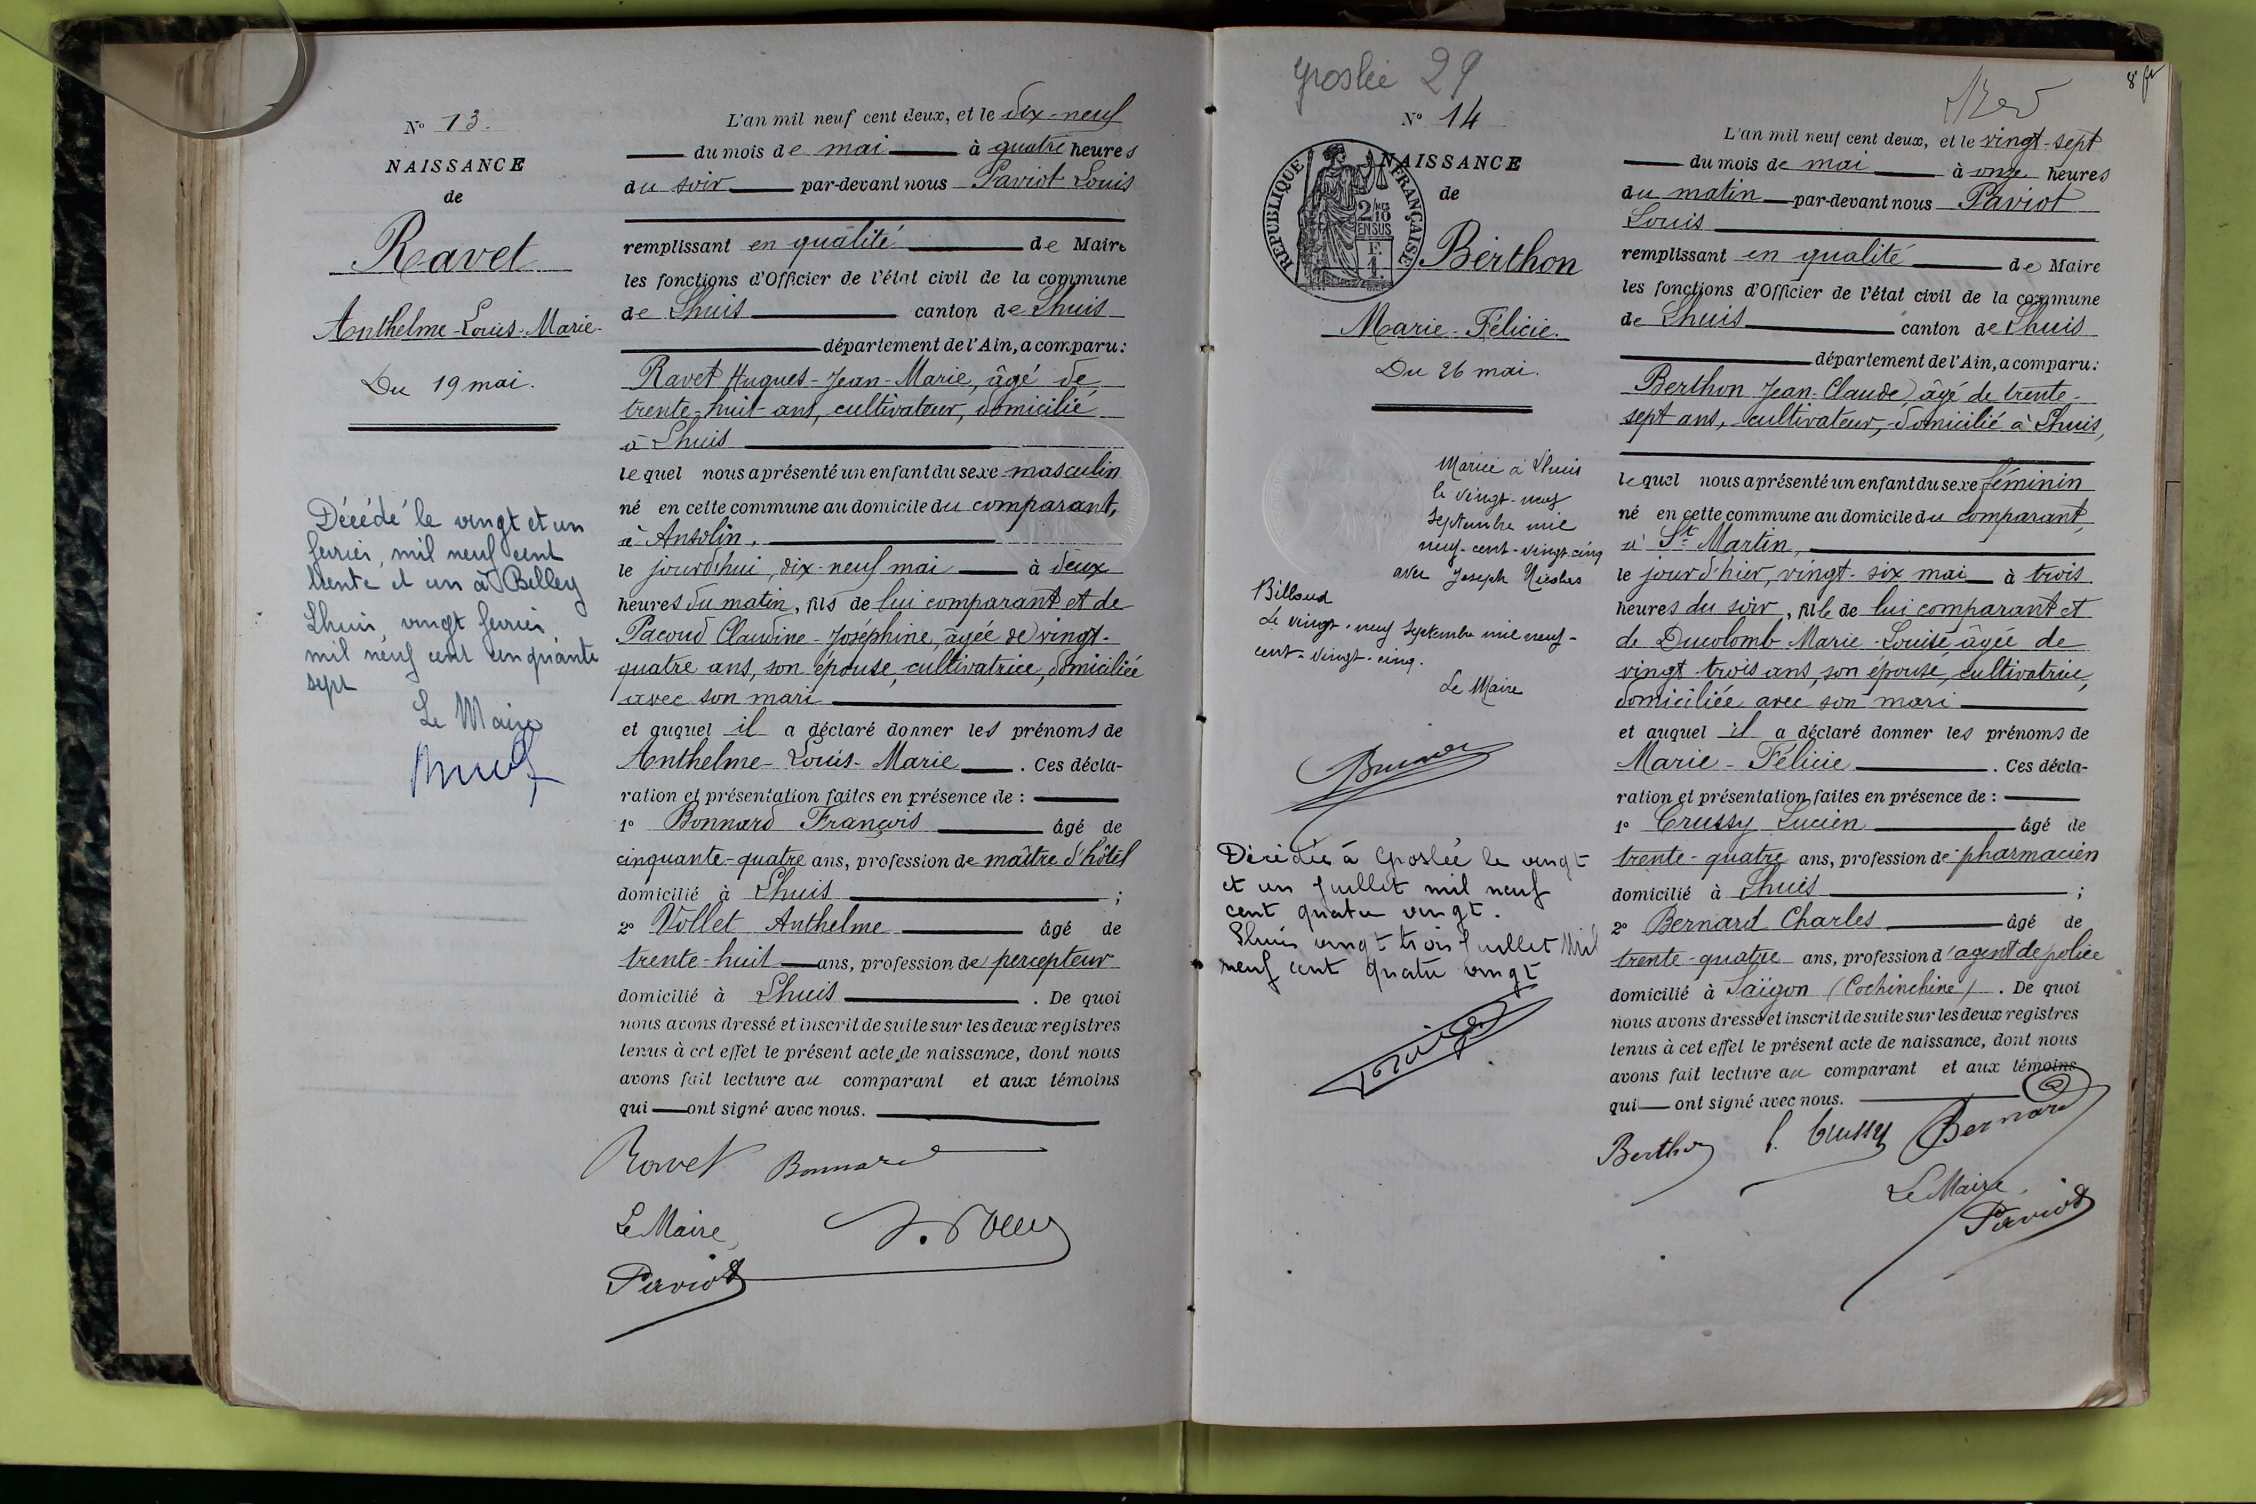 N° 13.
NAISSANCE
de
Ravet
Anthelme-Louis-Marie-
Du 19 mai.
Décédé le vingt et un
fevrier, mil neuf cent
trente et un à Belley
Lhuis, vingt fevrier
mil neuf cent cinquante
sept
Le Maire
L'an mil neuf cent deux, et le dix-neuf
du mois de mai à quatre heures
du soir par-devant nous Paviot Louis
remplissant en qualité de Maire
les fonctions d'Officier de l'état civil de la commune
de Lhuis canton de Lhuis
département de l'Ain, a comparu:
Ravet Hugues-Jean-Marie, âgé de
trente-huit ans, cultivateur, domicilié
à Lhuis
lequel nous a présenté un enfant du sexe masculin
né en cette commune au domicile du comparant,
à Ansolin.
le jourd'hui, dix-neuf mai à deux
heures du matin, fils de lui comparant et de
Pacoud Claudine-Joséphine, âgée de vingt-
quatre ans, son épouse, cultivatrice, domiciliée
avec son mari
et auquel il a déclaré donner les prénoms de
Anthelme-Louis-Marie. Ces décla-
ration et présentation faites en présence de :
1° Bonnard François âgé de
cinquante-quatre ans, profession de maître d'hôtel
domicilié à Lhuis ;
2° Vollet Anthelme âgé de
trente-huit ans, profession de percepteur
domicilié à Lhuis. De quoi
nous avons dressé et inscrit de suite sur les deux registres
tenus à cet effet le présent acte de naissance, dont nous
avons fait lecture au comparant et aux témoins
qui ont signé avec nous.
Ravet Bonnard
Le Maire,
Paviot
Groslée 29
N° 14
REPUBLIQUE FRANÇAISE
2/10 EN SUS
F 1.
NAISSANCE
de
Berthon
Marie-Félicie.
Du 26 mai.
Mariée à Lhuis
le vingt-neuf
Septembre mil
neuf-cent-vingt-cinq
avec Joseph Nicolas
Billoud
Le vingt-neuf Septembre mil neuf-
cent-vingt-cinq.
Le Maire
Décédée à Groslée le vingt
et un Juillet mil neuf
cent quatre vingt.
Lhuis vingt trois Juillet Mil
neuf cent quatre vingt
L'an mil neuf cent deux, et le vingt-sept
du mois de mai à onze heures
du matin par-devant nous Paviot
Louis
remplissant en qualité de Maire
les fonctions d'Officier de l'état civil de la commune
de Lhuis canton de Lhuis
département de l'Ain, a comparu:
Berthon Jean-Claude, âgé de trente-
sept ans, cultivateur, domicilié à Lhuis,
lequel nous a présenté un enfant du sexe féminin
né en cette commune au domicile du comparant
à St Martin,
le jour d'hier, vingt-six mai à trois
heures du soir, fille de lui comparant et
de Ducolomb Marie-Louise âgée de
vingt-trois ans, son épouse, cultivatrice,
domiciliée avec son mari
et auquel il a déclaré donner les prénoms de
Marie-Félicie. Ces décla-
ration et présentation faites en présence de :
1° Crussy Lucien âgé de
trente-quatre ans, profession de pharmacien
domicilié à Lhuis ;
2° Bernard Charles âgé de
trente-quatre ans, profession d'agent de police
domicilié à Saïgon (Cochinchine). De quoi
nous avons dressé et inscrit de suite sur les deux registres
tenus à cet effet le présent acte de naissance, dont nous
avons fait lecture au comparant et aux témoins
qui ont signé avec nous.
Berthon L. Crussy Bernard
Le Maire,
Paviot